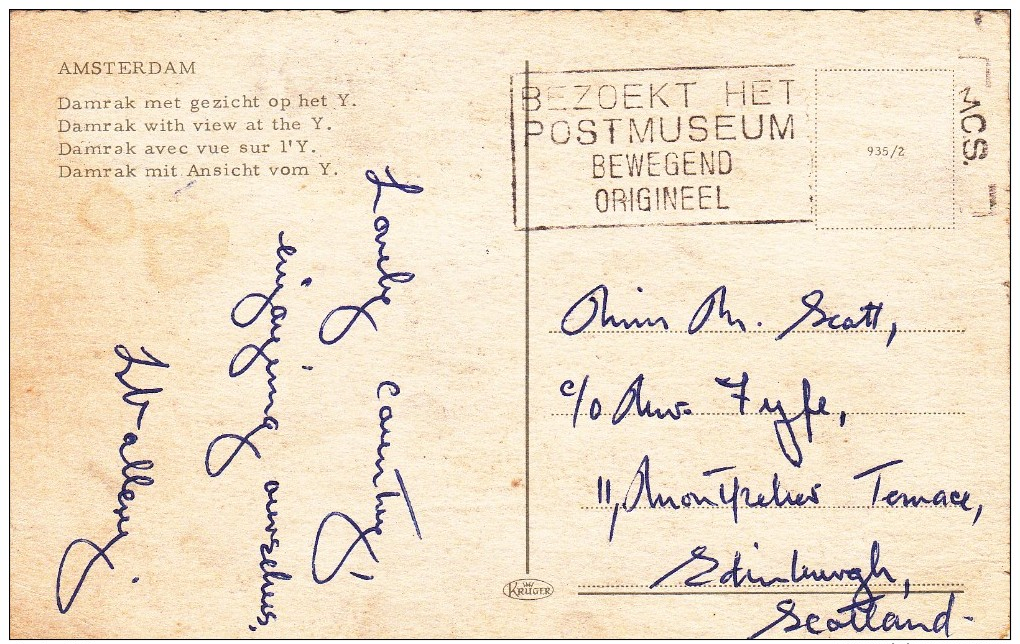 AMSTERDAM
Damrak met gezicht op het Y.
Damrak with view at the Y.
Damrak avec vue sur l'Y.
Damrak mit Ansicht vom Y.
BEZOEKT HET
POSTMUSEUM
BEWEGEND
ORIGINEEL
935/2
MCS.
Lovely country,
enjoying ourselves,
Miss M. Scott,
c/o Mrs Fyfe,
11, Montpelier Terrace,
Edinburgh,
Scotland.
KRÜGER